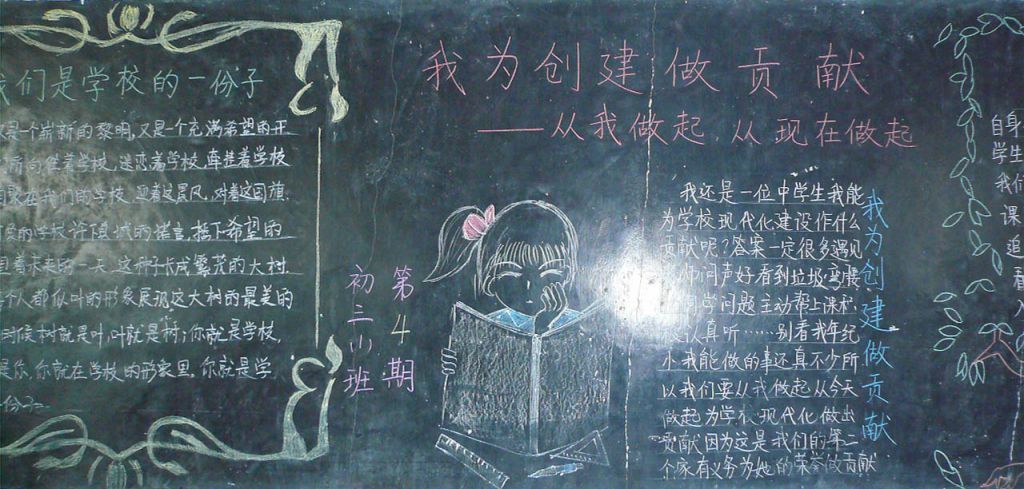 我们是学校的一份子
是一个崭新的黎明,又是一个充满希望的开
着学校,迷恋着学校,牵挂着学校
在我们的学校,迎着这晨风,对着这国旗.
的学校许下真诚的诺言,播下希望的
着未来的一天,这种子长成繁茂的大树.
个人都似叶的形象展现这大树的最美的
时候树就是叶,叶就是树;你就是学校,
你就在学校的形象里.你就是学
一份子.
我为创建做贡献
——从我做起,从现在做起
第4期
初三(1)班
我还是一位中学生我能
为学校现代化建设作什么
贡献呢?答案一定很多遇见
问声好看到垃圾弯腰
同学问题主动帮上课求
认真听……别看我年纪
小我能做的事还真不少所
以我们要从我做起从今天
做起为学校现代化做出
贡献因为这是我们的第二
个家有义务为她的荣誉做贡献
我为创建做贡献
自身
学生
我们
课
追
看